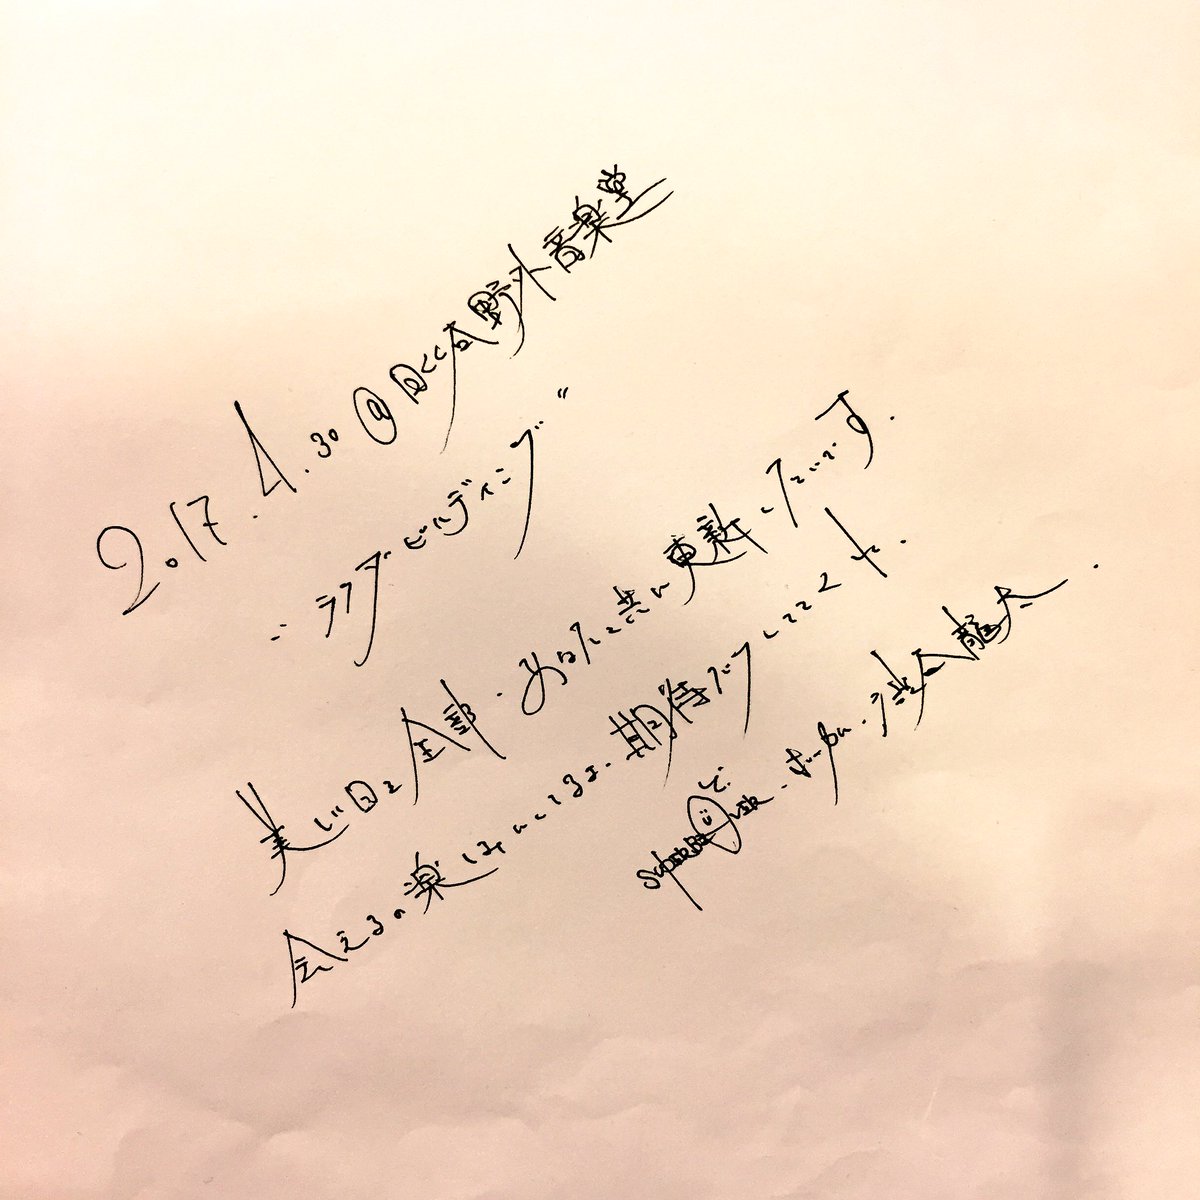 2017.4.30 @日比谷野外音楽堂
"ラブビルディング"
美しい日を全部.あなたと共に更新したいです.
会えるの楽しみにしてるよ.期待がっしてこと.
SUPER BEAVER.ボーカル.渋谷龍太.